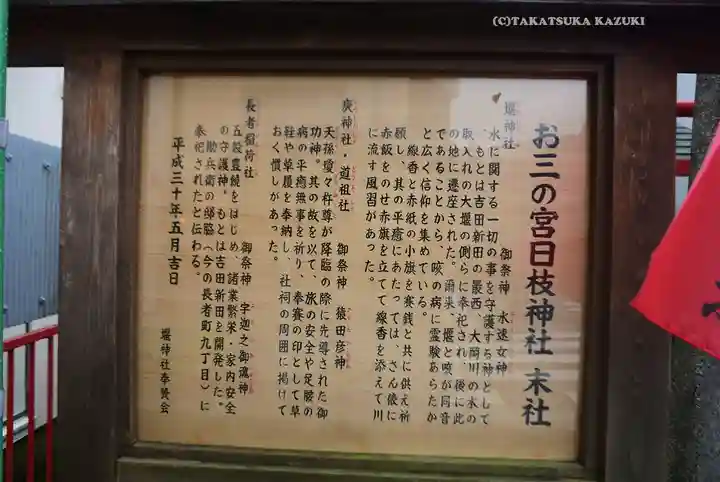 (C)TAKATSUKA KAZUKI
お三の宮日枝神社 末社
堰神社 御祭神 水速女神
水に関する一切の事を守護する神として
、もとは吉田新田の最西、大岡川の水の
取入れの大堰の側らに奉祀され、後に此
の地に遷座された。爾来、堰と咳が同音
であることから、咳の病に霊験あらたか
と広く信仰を集めている。
線香と赤紙の小旗を賽銭と共に供え祈
願し、其の平癒にあたっては、さん俵に
赤飯をのせ赤旗を立てて線香を添えて川
に流す風習があった。
庚神社・道祖社 御祭神 猿田彦神
天孫瓊々杵尊が降臨の際に先導された御
功神。其の故を以て、旅の安全や足腰の
病の平癒無事を祈り、奉賽の印として草
鞋や草履を奉納し、社祠の周囲に掲げて
おく慣しがあった。
長者稲荷社 御祭神 宇迦之御魂神
五穀豊饒をはじめ、諸業繁栄・家内安全
の守護神。もとは吉田新田を開発した。
勘兵衛の邸脇(今の長者町九丁目)に
奉祀されたと伝わる。
平成三十年五月吉日
堰神社奉賛会